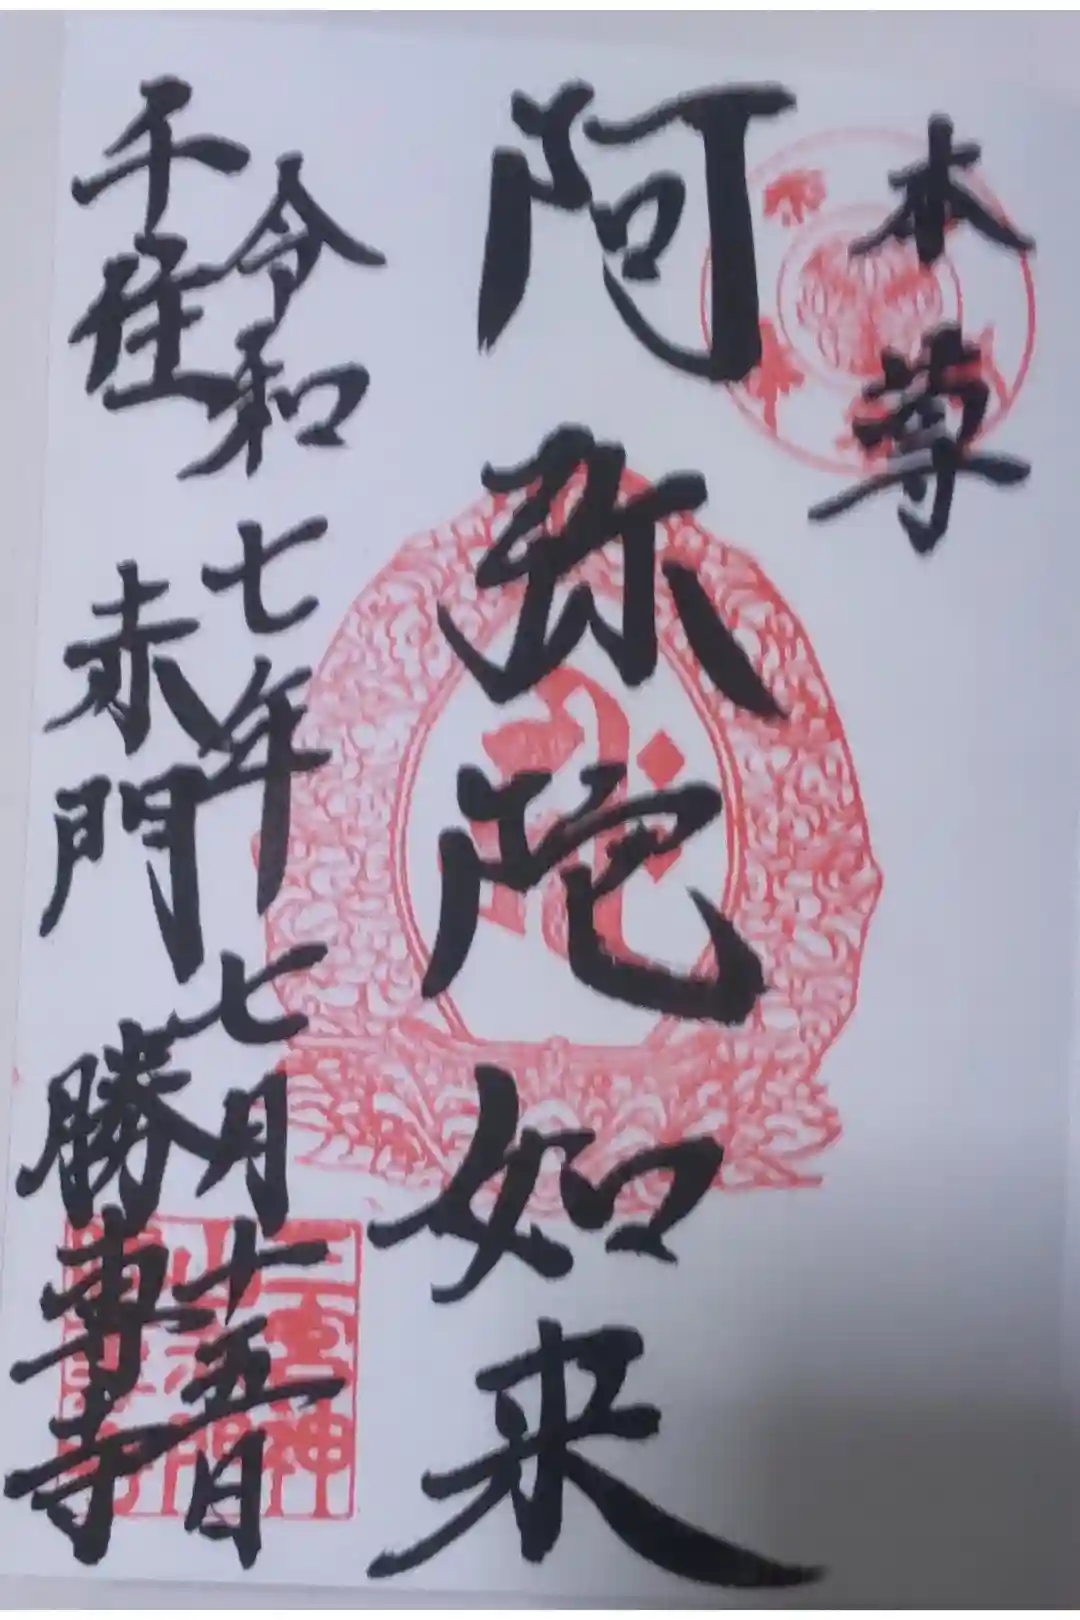 本尊
阿弥陀如来
令和七年七月十五日
千住 赤門 勝専寺